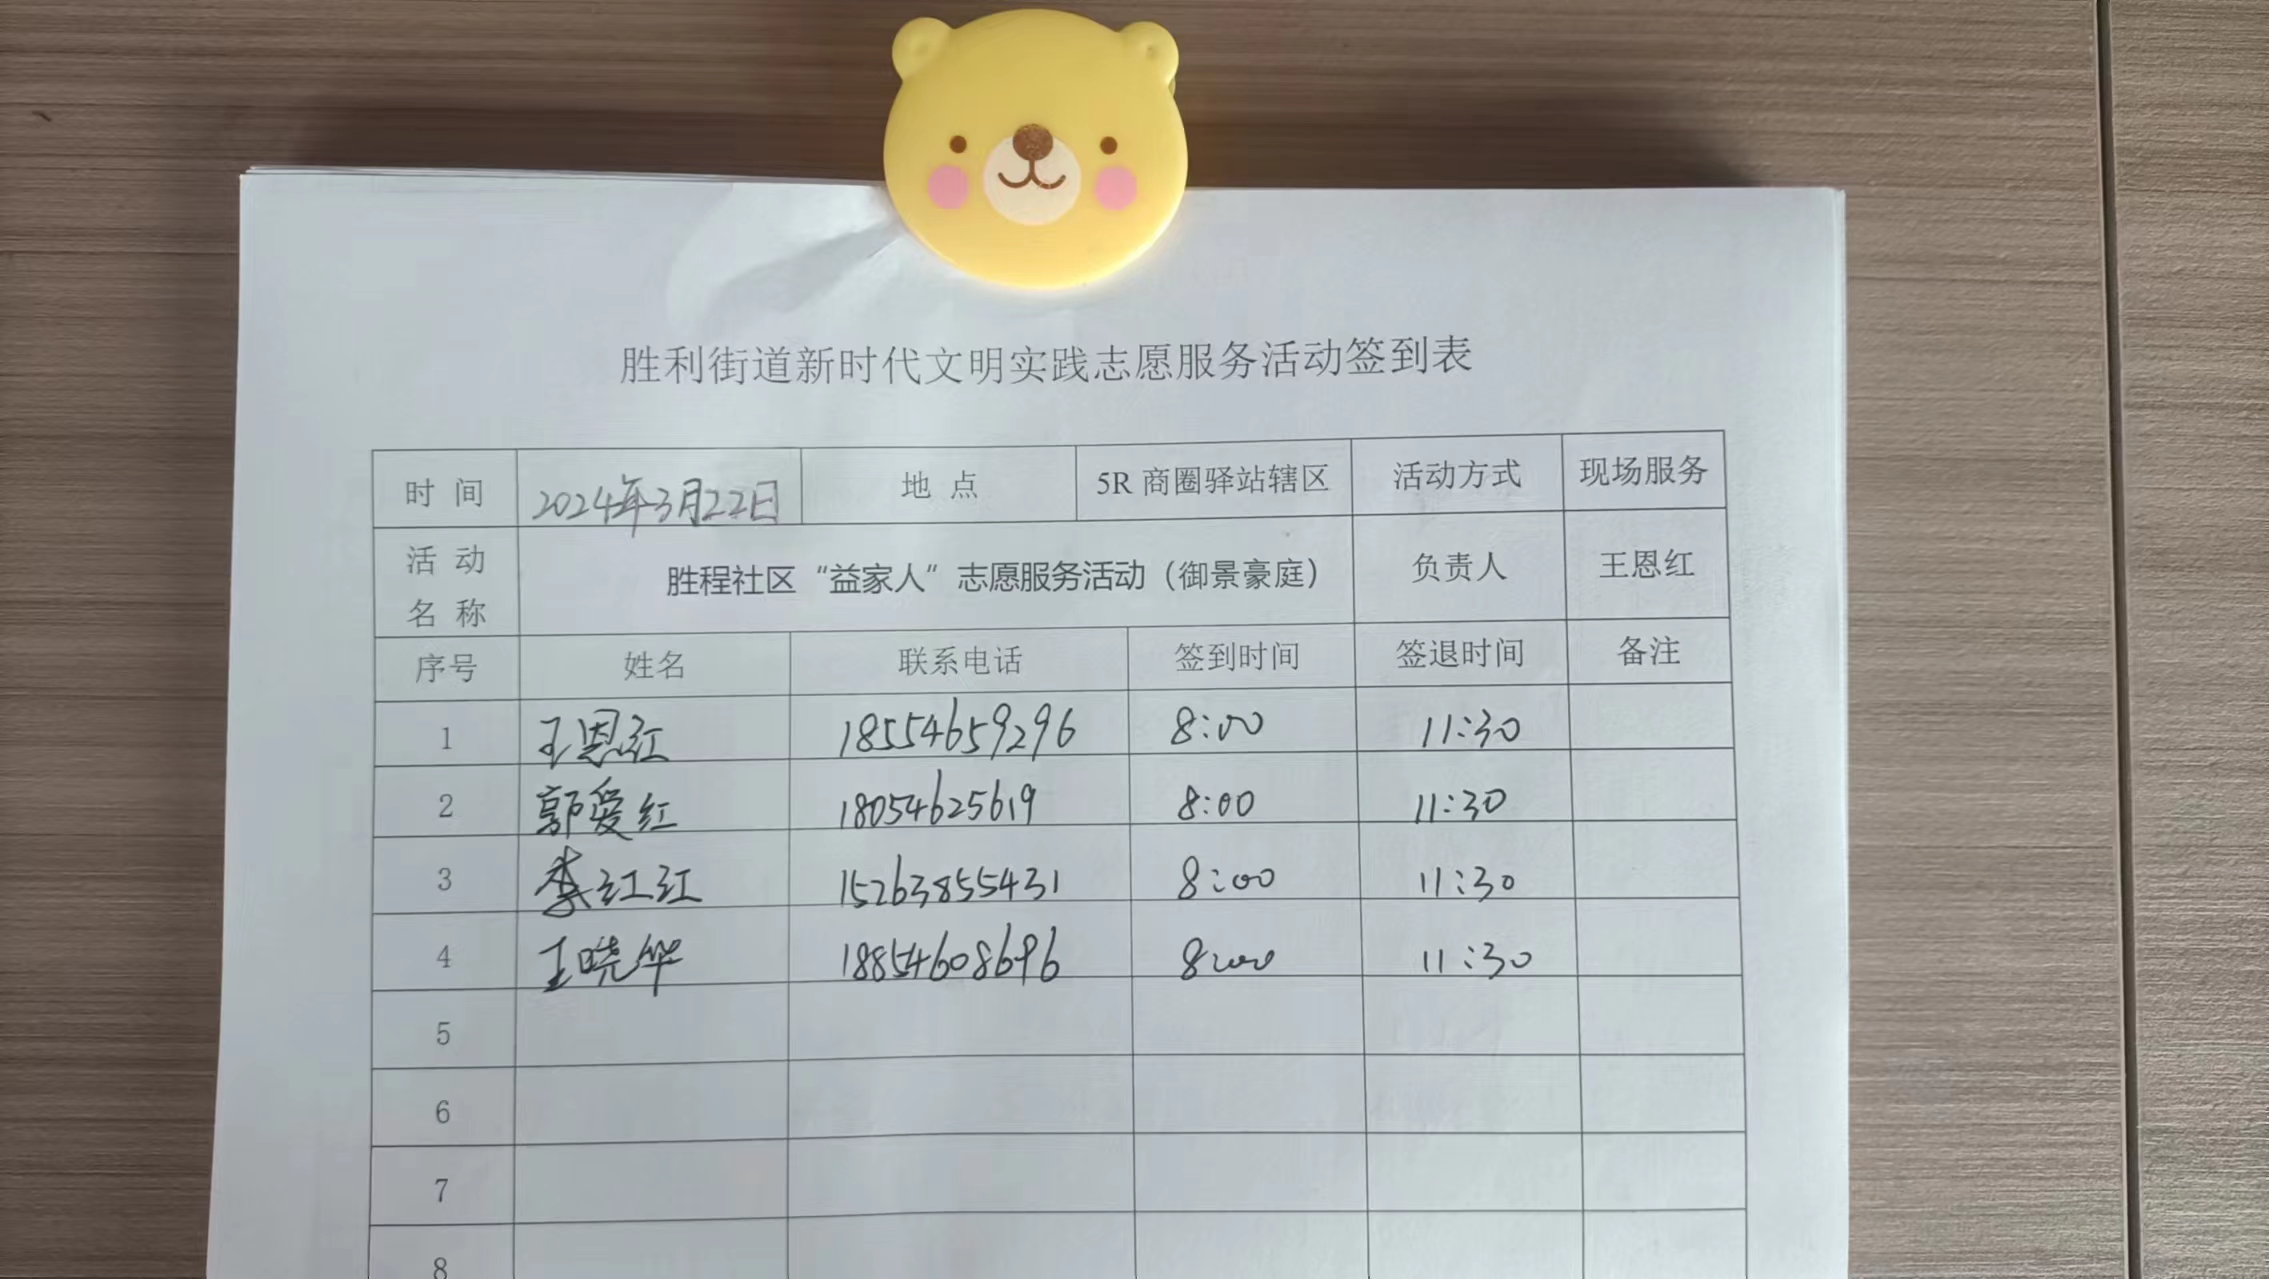 胜利街道新时代文明实践志愿服务活动签到表
时 间 2024年3月22日 地 点 5R 商圈驿站辖区 活动方式 现场服务
活 动 名 称 胜程社区“益家人”志愿服务活动（御景豪庭） 负责人 王恩红
序号 姓名 联系电话 签到时间 签退时间 备注
1 王恩红 18554659296 8:00 11:30
2 郭爱红 18054625619 8:00 11:30
3 李红红 15263855431 8:00 11:30
4 王晓华 18854608696 8:00 11:30
5
6
7
8